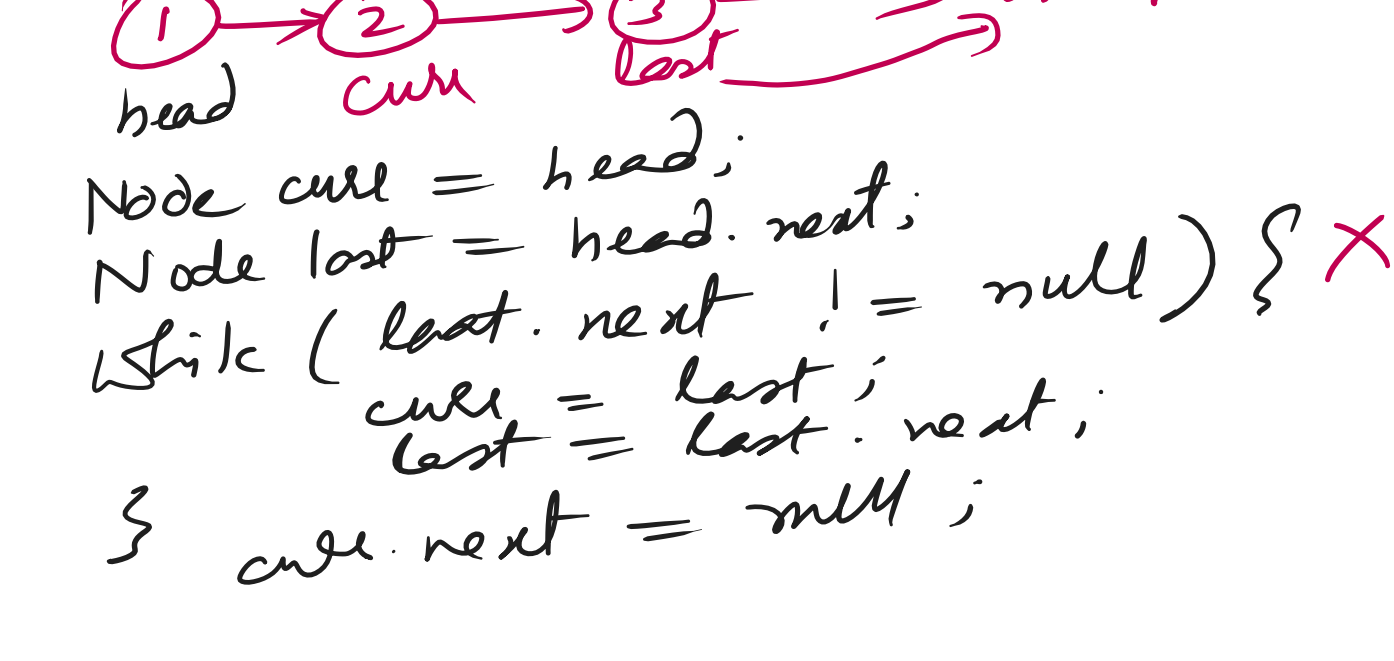 1 2 3
last
head curr
Node curr = head;
Node last = head.next;
while ( last.next != null) {
curr = last;
last = last.next;
}
curr.next = null;